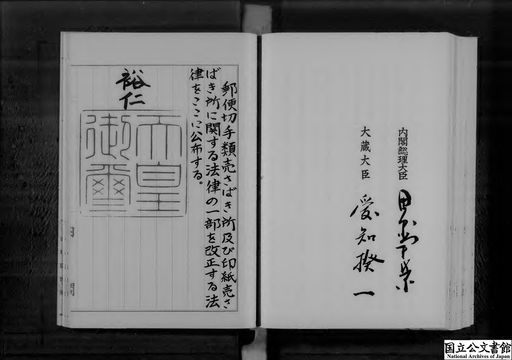 郵便切手類売さばき所及び印紙売さ
ばき所に関する法律の一部を改正する法
律をここに公布する。
裕仁
天皇
御璽
内閣総理大臣
大蔵大臣
愛知揆一
国立公文書館
National Archives of Japan